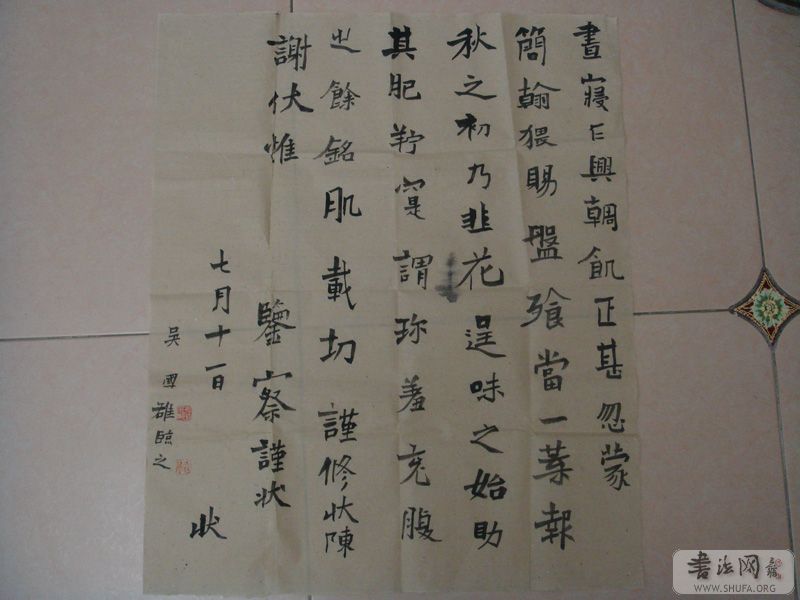 晝寢乍興朝飢正甚忽蒙
簡翰猥賜盤飧當一葉報
秋之初乃韭花逞味之始助
其肥羜寔謂珎羞充腹
之餘銘肌載切謹修狀陳
謝伏惟
鑒察謹狀
七月十一日
狀
吴國雄臨之
书法网
WWW.SHUFA.ORG